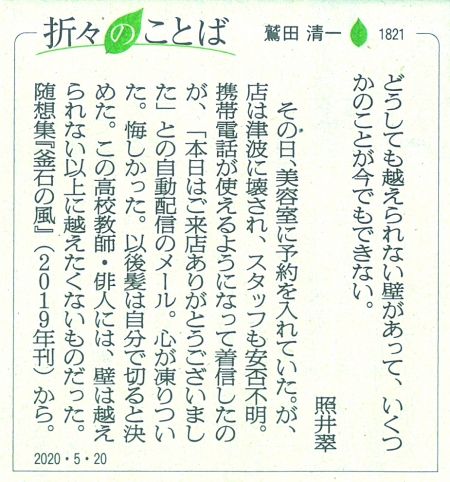 折々のことば
鷲田 清一
1821
どうしても越えられない壁があって、いくつ
かのことが今でもできない。
照井翠
その日、美容室に予約を入れていた。が、
店は津波に壊され、スタッフも安否不明。
携帯電話が使えるようになって着信したの
が、「本日はご来店ありがとうございまし
た」との自動配信のメール。心が凍りつい
た。悔しかった。以後髪は自分で切ると決
めた。この高校教師・俳人には、壁は越え
られない以上に越えたくないものだった。
随想集『釜石の風』（2019年刊）から。
2020・5・20